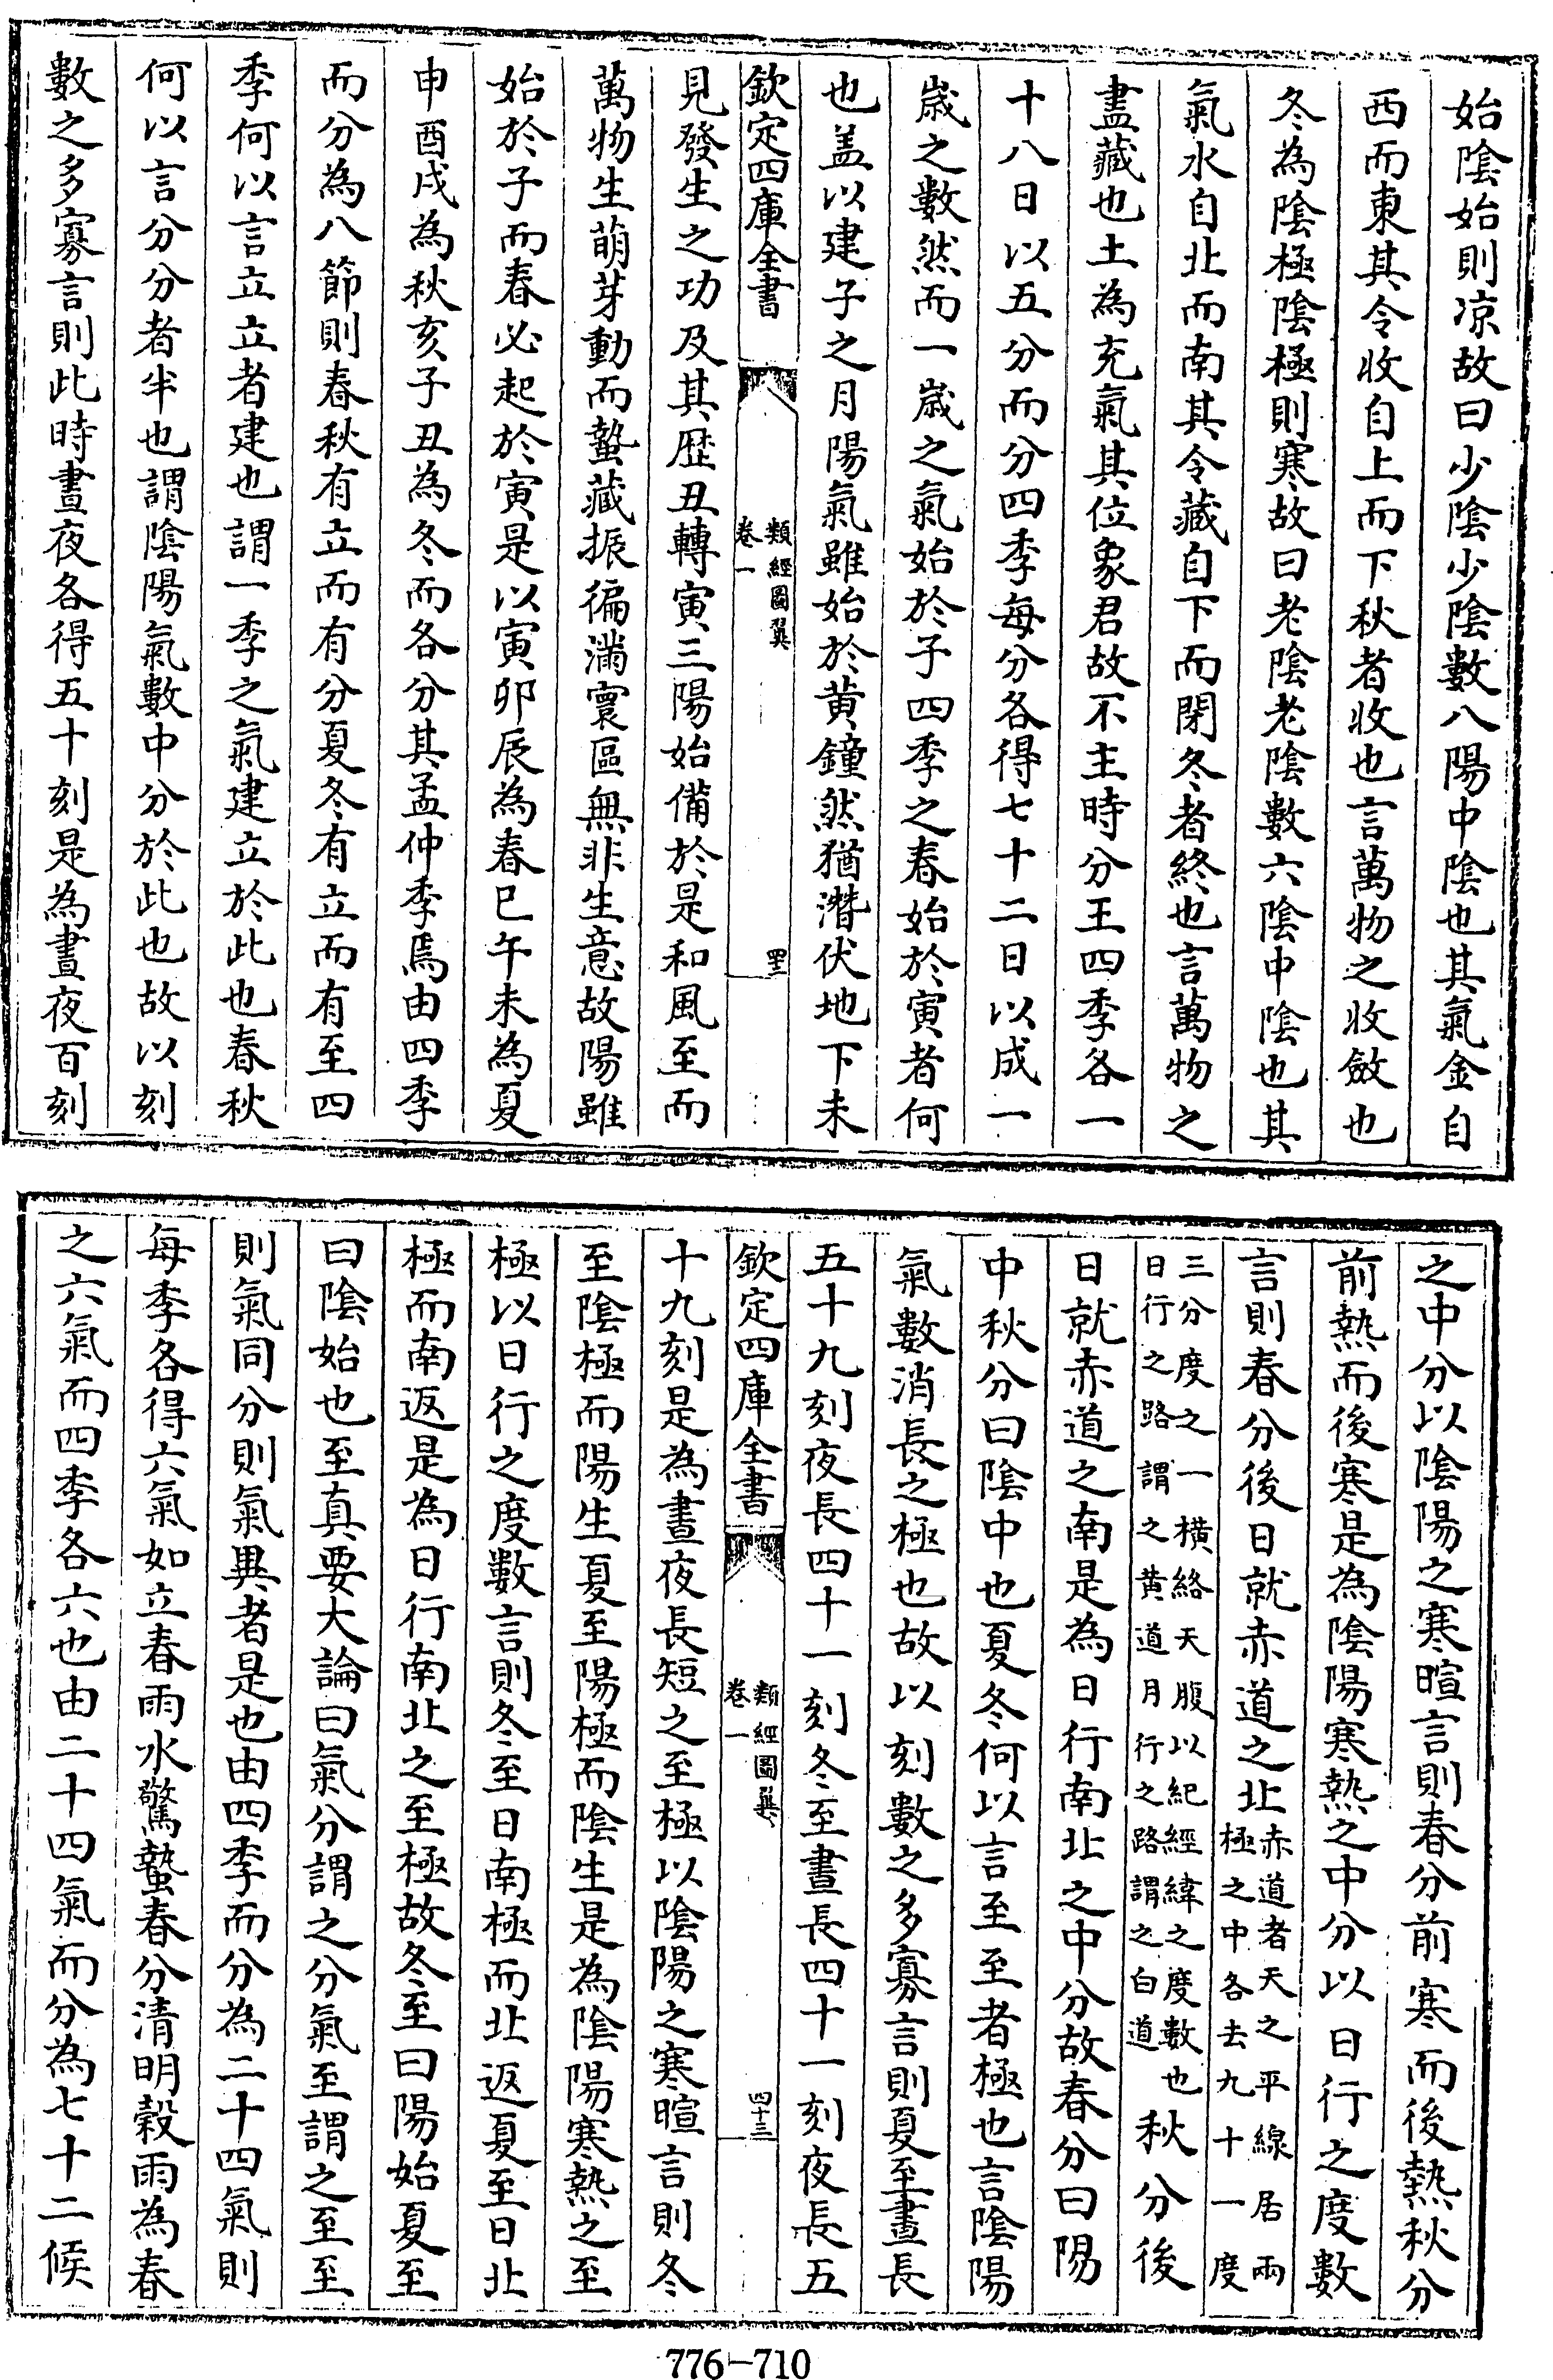 始陰始則凉故曰少陰少陰數八陽中陰也其氣金自
西而東其令收自上而下秋者收也言萬物之收斂也
冬為陰極陰極則寒故曰老陰老陰數六陰中陰也其
氣水自北而南其令藏自下而閉冬者終也言萬物之
盡藏也土為充氣其位象君故不主時分王四季各一
十八日以五分而分四季每分各得七十二日以成一
歲之數然而一歲之氣始於子四季之春始於寅者何
也盖以建子之月陽氣雖始於黄鐘然猶潛伏地下未
欽定四庫全書
類經圖翼
卷一
四三
見發生之功及其歴丑轉寅三陽始備於是和風至而
萬物生萌芽動而蟄藏振徧滿寰區無非生意故陽雖
始於子而春必起於寅是以寅卯辰為春巳午未為夏
申酉戌為秋亥子丑為冬而各分其孟仲季焉由四季
而分為八節則春秋有立而有分夏冬有立而有至四
季何以言立立者建也謂一季之氣建立於此也春秋
何以言分分者半也謂陰陽氣數中分於此也故以刻
數之多寡言則此時晝夜各得五十刻是為晝夜百刻
之中分以陰陽之寒暄言則春分前寒而後熱秋分
前熱而後寒是為陰陽寒熱之中分以日行之度數
言則春分後日就赤道之北赤道者天之平線居兩
極之中各去九十一度
三分度之一橫絡天腹以紀經緯之度數也
日行之路謂之黄道月行之路謂之白道秋分後
日就赤道之南是為日行南北之中分故春分曰陽
中秋分曰陰中也夏冬何以言至至者極也言陰陽
氣數消長之極也故以刻數之多寡言則夏至晝長
五十九刻夜長四十一刻冬至晝長四十一刻夜長五
欽定四庫全書
類經圖翼
卷一
四十三
十九刻是為晝夜長短之至極以陰陽之寒暄言則冬
至陰極而陽生夏至陽極而陰生是為陰陽寒熱之至
極以日行之度數言則冬至日南極而北返夏至日北
極而南返是為日行南北之至極故冬至曰陽始夏至
曰陰始也至真要大論曰氣分謂之分氣至謂之至至
則氣同分則氣異者是也由四季而分為二十四氣則
每季各得六氣如立春雨水驚蟄春分清明穀雨為春
之六氣而四季各六也由二十四氣而分為七十二候
776-710